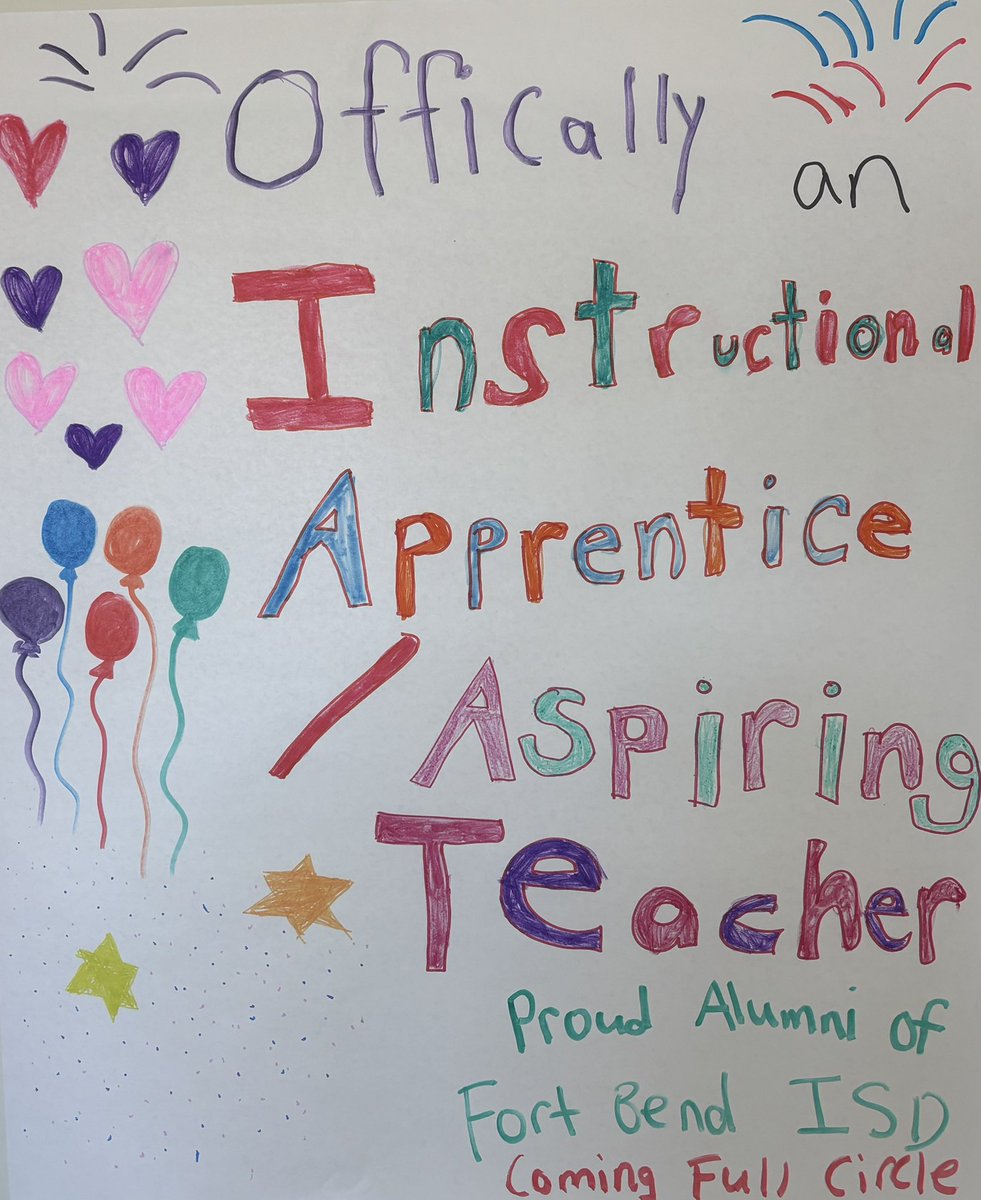 Offically
an
Instructional
Apprentice
/Aspiring
Teacher
Proud Alumni of
Fort Bend ISD
Coming Full Circle